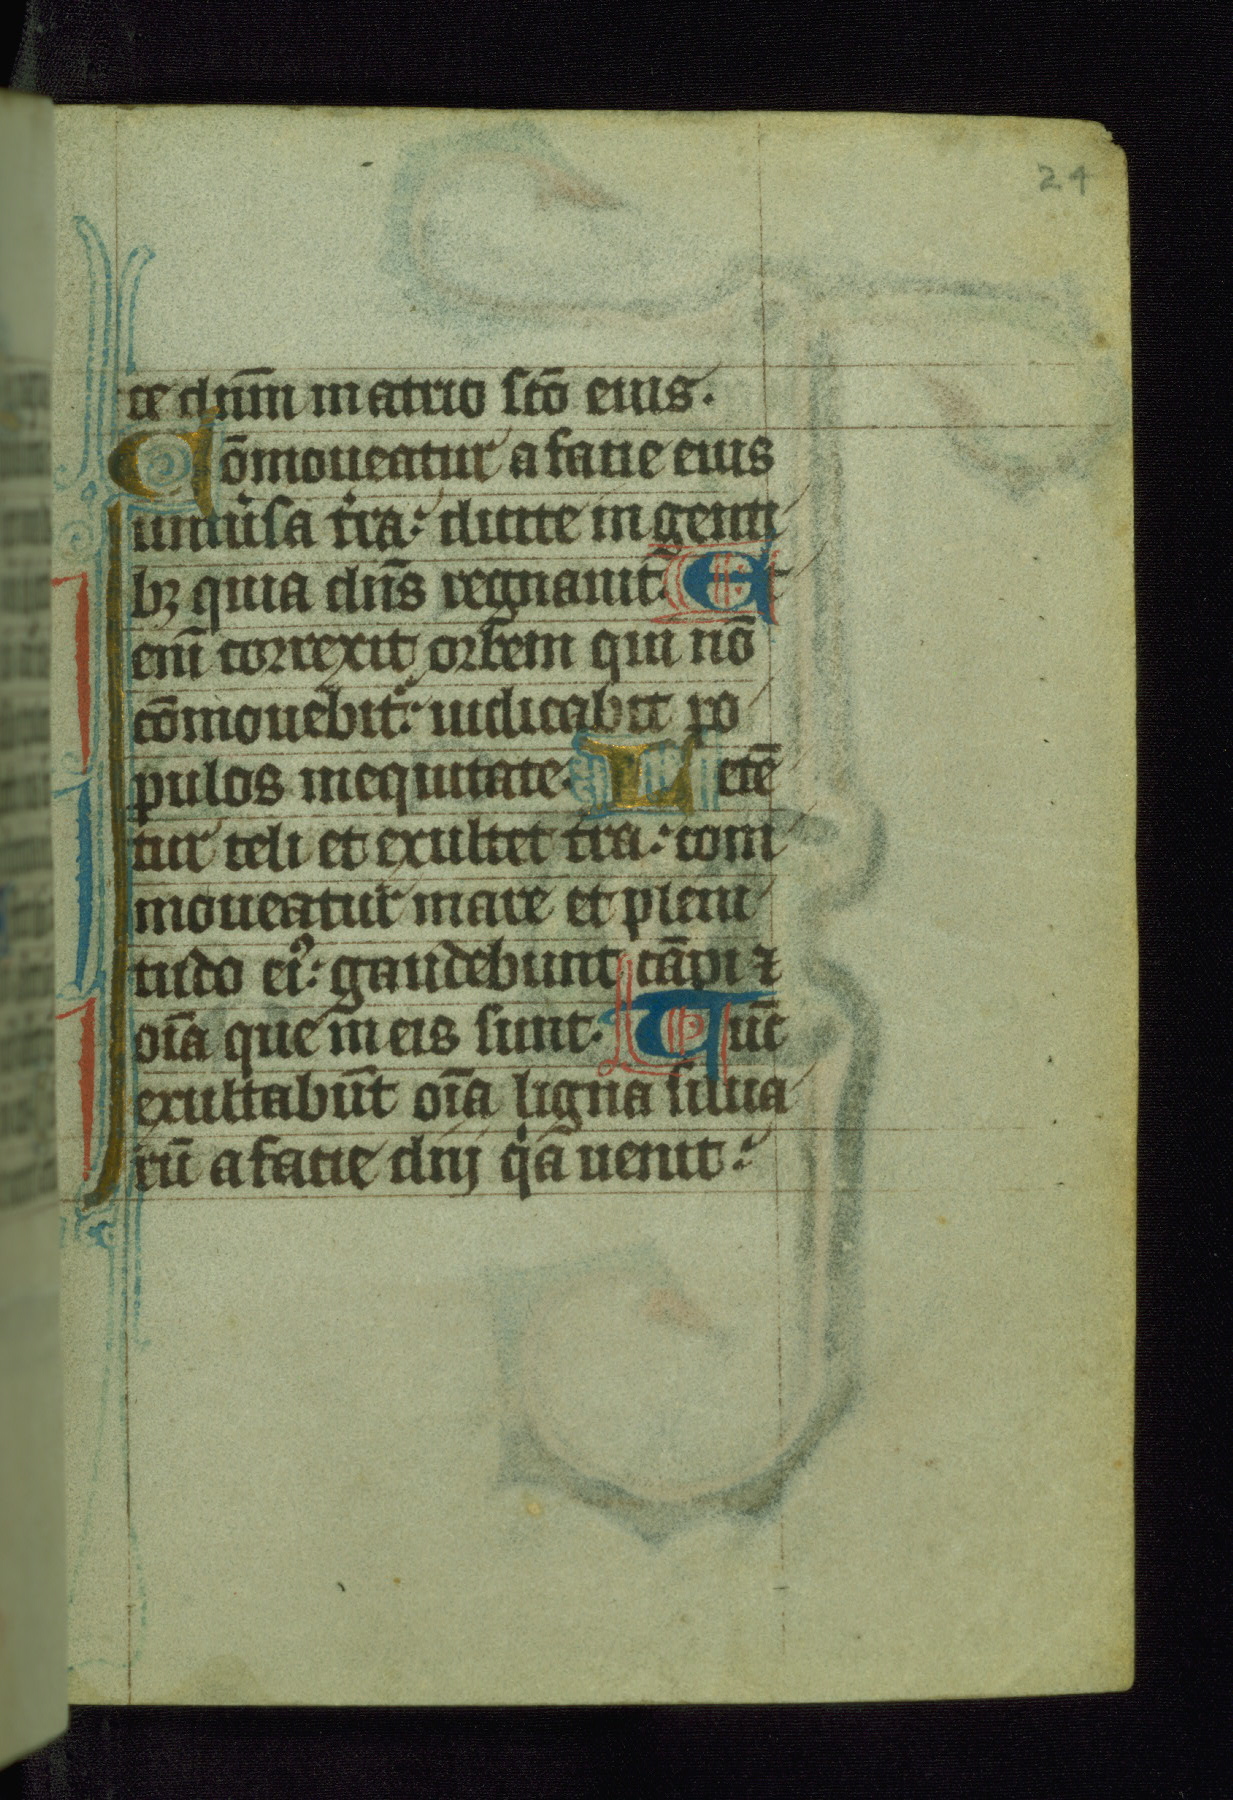 24
te dnm̄ in atrio sco̅ eius.
Co̅moueatur a facie eius
uniuˀsa tˀra: dicite in genti
bꝫ quia dn̅s regnauit. Et
eni̅ correxit orbem qui no̅
co̅mouebitˀ: iudicabit po
pulos in equitate. Lete̅
tur celi et exultet tˀra: com
moueatur mare et pleni
tudo eiꝰ: gaudebunt ca̅pi ⁊
oi̅a que in eis sunt. Tu̅c
exultabu̅t oi̅a ligna silua
ru̅ a facie dn̅j q̇a uenit: